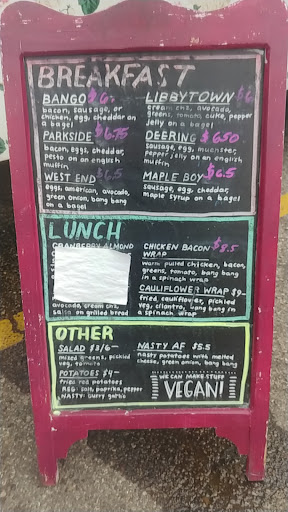 BREAKFAST
BANGO $6-
bacon, sausage, or
chicken, egg, cheddar on
a bagel
PARKSIDE $6.75
bacon, eggs, cheddar,
pesto on an english
muffin
WEST END $6.5
eggs, american, avocado,
green onion, bang bang
on a bagel
LIBBYTOWN $6
cream chs, avocado,
greens, tomato, cuke, pepper
jelly on a bagel
DEERING $6.50
sausage, egg, muenster,
pepper jelly on an english
muffin
MAPLE BOY $6.5
sausage, egg, cheddar,
maple syrup on a bagel
LUNCH
CRANBERRY ALMOND
avocado, cream chs,
salsa on grilled bread
CHICKEN BACON $8.5
WRAP
warm pulled chicken, bacon,
greens, tomato, bang bang
in a spinach wrap
CAULIFLOWER? WRAP $9-
fried cauliflower, pickled
veg, cilantro, bang bang in
a spinach wrap
OTHER
SALAD $3/6-
mixed greens, pickled
veg, tomato
POTATOES $4-
fried red potatoes
REG: salt, paprika, pepper
NASTY: curry garlic
NASTY AF $5.5
nasty potatoes with melted
cheese, green onion, bang bang
WE CAN MAKE STUFF
VEGAN!